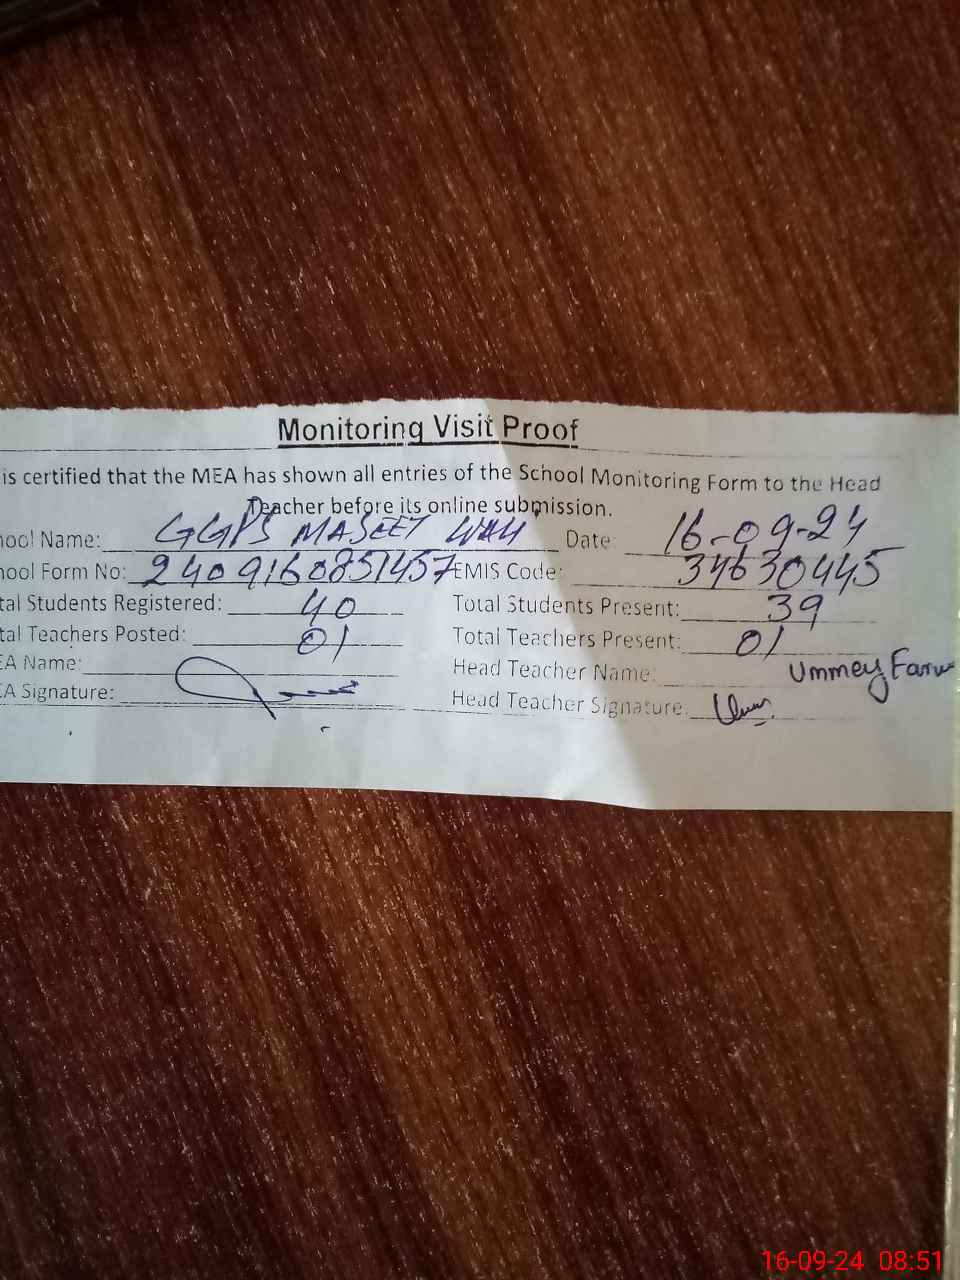 Monitoring Visit Proof
is certified that the MEA has shown all entries of the School Monitoring Form to the Head
Teacher before its online submission.
hool Name: GGPS MASEET WALI Date: 16-09-24
hool Form No: 2409160851457 EMIS Code: 34630445
tal Students Registered: 40 Total Students Present: 39
tal Teachers Posted: 01 Total Teachers Present: 01
EA Name: Head Teacher Name: Ummey
EA Signature: Head Teacher Signature:
16-09-24 08:51